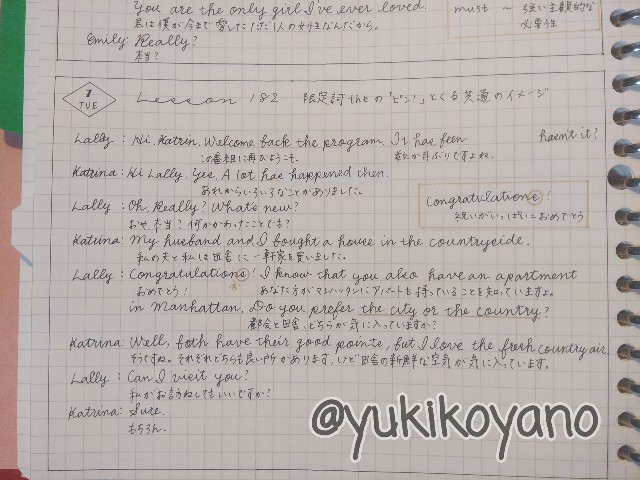 You are the only girl I've ever loved.
君は僕が今まで愛したただ1人の女性なんだから。
must ~ 強い主観的な
必要性
Emily: Really?
本当?
7
TUE
Lesson 182 限定詞theの「ピン!」とくる共通のイメージ
Lally : Hi, Katrin. Welcome back the program. It has been hasn't it?
この番組に再びようこそ。 数か月ぶりですよね。
Katrina: Hi Lally. Yes. A lot has happened then.
あれからいろいろなことがありました。
Lally : Oh, Really? What's new?
おや、本当? 何かかわったことでも?
Congratulations!
祝いがいっぱいおめでとう
Katrina: My husband and I bought a house in the countryside.
私の夫と私は田舎に一軒家を買いました。
Lally : Congratulations! I know that you also have an apartment
おめでとう! あなた方がマンハッタンにアパートも持っていることを知っていますよ。
in Manhattan. Do you prefer the city or the country?
都会と田舎、どちらが気に入っていますか?
Katrina: Well, both have their good points, but I love the fresh country air.
そうですね。それぞれどちらも良い所があります。けど田舎の新鮮な空気が気に入っています。
Lally : Can I visit you?
私がお訪ねしてもいいですか?
Katrina: Sure.
もちろん。
@yukikoyano